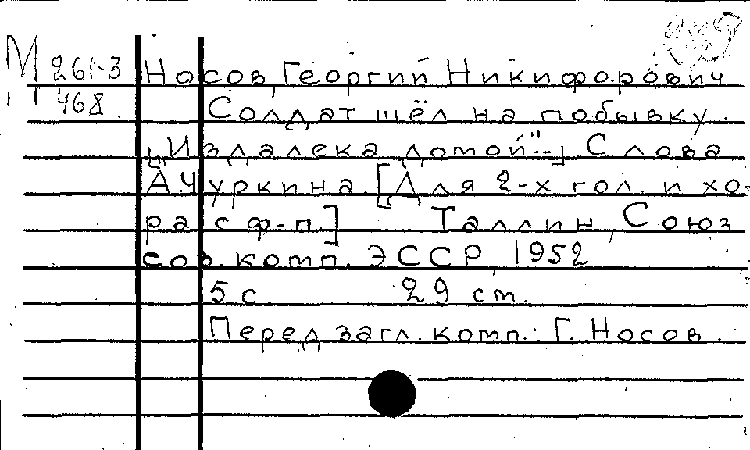 М 261-3 Носов, Георгий Никифорович
468 Солдат шёл на побывку.
["Издалека домой"...] Слова
А Чуркина. [Для 2-х гол. и хо-
ра с ф-п.] Таллин, Союз
сов. комп. ЭССР, 1952
5 с 29 cm.
Перед загл. комп.: Г. Носов.